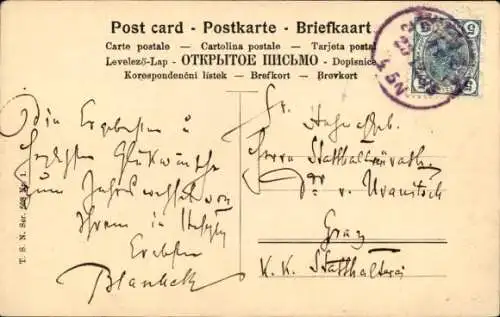 Post card - Postkarte - Briefkaart
Carte postale – Cartolina postale – Tarjeta postal
Levelező-Lap - ОТКРЫТОЕ ПИСЬМО - Dopisnice
Korespondenční listek – Brefkort – Brevkort
5 5
Die Ergebensten u
herzlichsten Glückwünsche
zum Jahreswechsel von
Ihrem in
Ergebenen
T. S. N. Ser.
Sr.
Herrn Statthaltereirath
Dr. v.
Graz
K. K. Statthalterei